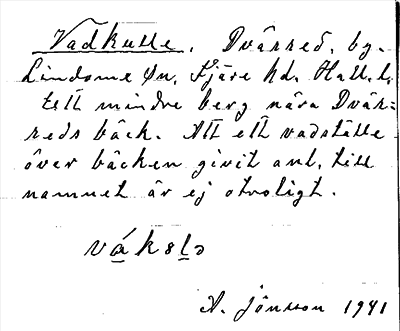 Vadkulle, Dvärred, by.
Lindome sn, Fjäre hd. Hall. l.
till mindre berg nära Dvär=
reds bäck. Att ett vadställe
över bäcken givit anl. till
namnet är ej otroligt.
A. Jönsson 1941